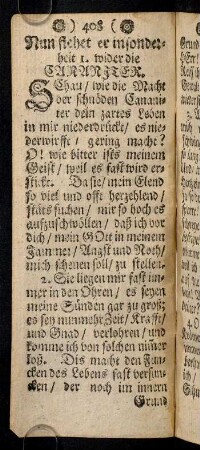 ) 408 (
Nun flehet er insonder-
heit 1. wider die
CANANITER.
Schau / wie die Macht
der schnöden Canani-
ter dein zartes Leben
in mir niederdruckt / es nie-
derwirfft / gering macht?
O! wie bitter ists meinem
Geist / weil es fast wird er-
stickt. Da sie / mein Elend
so viel und offt herzehlend /
stäts suchen / mir so hoch es
aufzuschwöllen / daß ich vor
dich / mein GOtt in meinem
Jammer / Angst und Noth /
mich schemen soll / zu stellen.
2. Sie liegen mir fast im-
mer in den Ohren / es seyen
meine Sünden gar zu groß;
es sey nunmehr Zeit / Krafft /
und Gnad / verlohren / und
komme ich von solchen nim̃er
loß. Dis macht den Fun-
cken des Lebens fast versun-
cken / der noch im innern
Grund